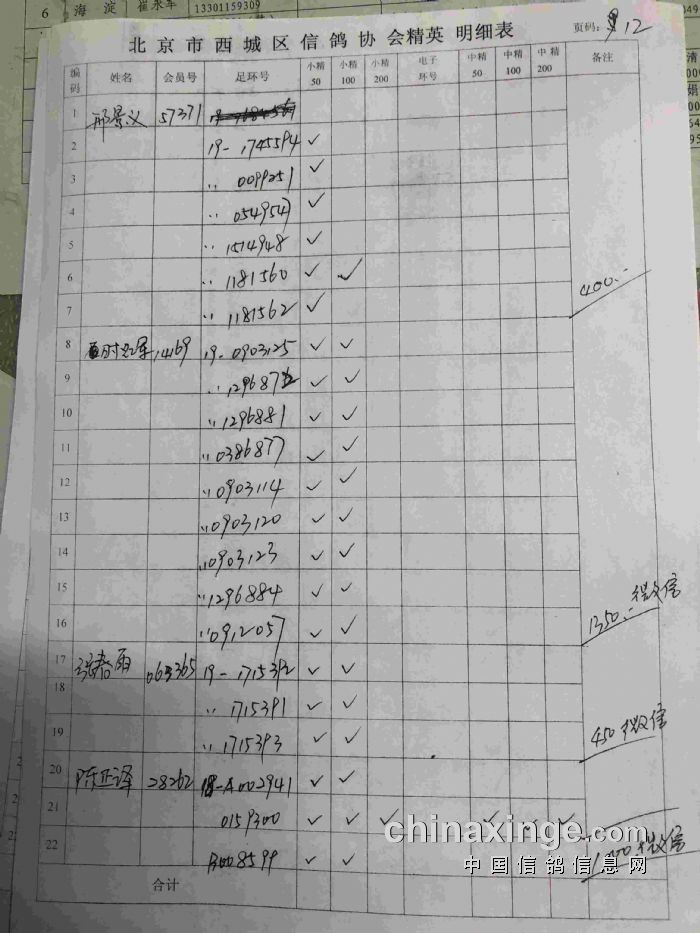 6 海淀 崔永军 13301159309
北京市西城区信鸽协会精英 明细表
页码: 12
编码 姓名 会员号 足环号 小精50 小精100 小精200 电子环号 中精50 中精100 中精200 备注
1 邢景义 57371
2 19-1745594 ✓
3 〃 0099251 ✓
4 〃 0549547 ✓
5 〃 1514948 ✓
6 〃 1181560 ✓ ✓
7 〃 1181562 ✓ 400.-
8 14169 19-0903125 ✓ ✓
9 ✓ ✓
10 〃 1296881 ✓ ✓
11 〃 0386877 ✓ ✓
12 〃 0903114 ✓ ✓
13 〃 0903120 ✓ ✓
14 〃 0903123 ✓ ✓
15 〃 1296884 ✓ ✓
16 〃 0912057 ✓ ✓ 1350.- 微信
17 张春雨 063365 19-1715392 ✓ ✓
18 〃 1715391 ✓ ✓
19 〃 1715393 ✓ ✓ 450 微信
20 陈正译 28262 18-A002941 ✓ ✓
21 0159300 ✓ ✓ ✓ ✓ ✓ ✓
22 B008599 ✓ ✓ 微信
合计
chinaxinge.com
中国信鸽信息网